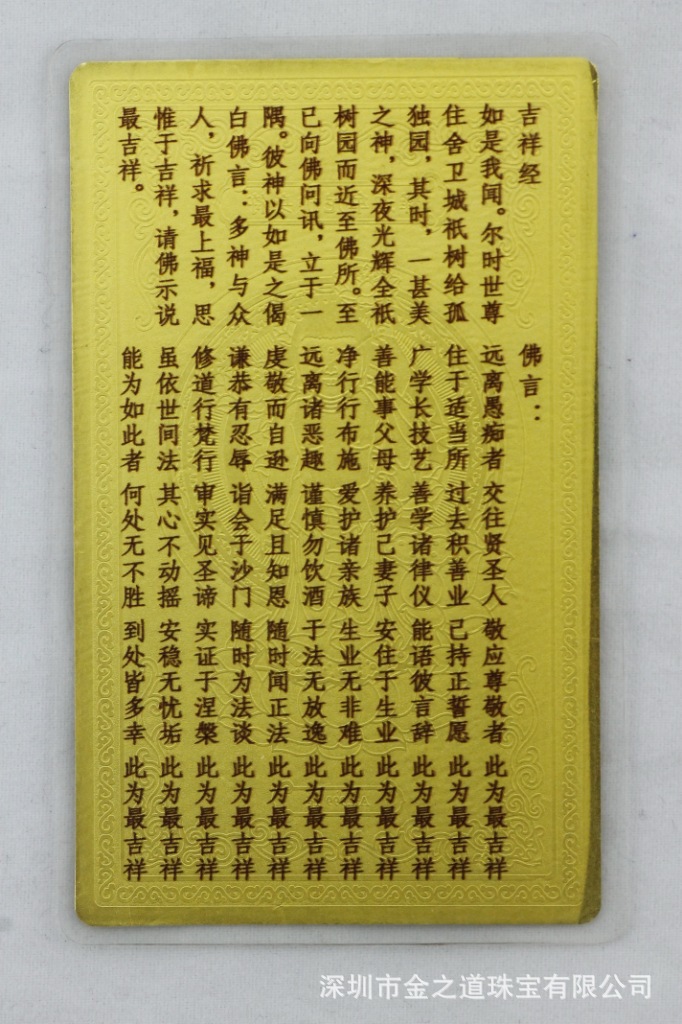 吉祥经
如是我闻。尔时世尊
住舍卫城祇树给孤
独园，其时，一甚美
之神，深夜光辉全祇
树园而近至佛所。至
已向佛问讯，立于一
隅。彼神以如是之偈
白佛言：多神与众
人，祈求最上福，思
惟于吉祥，请佛示说
最吉祥。
佛言：
远离愚痴者 交往贤圣人 敬应尊敬者 此为最吉祥
住于适当所 过去积善业 己持正誓愿 此为最吉祥
广学长技艺 善学诸律仪 能语彼言辞 此为最吉祥
善能事父母 养护己妻子 安住于生业 此为最吉祥
净行行布施 爱护诸亲族 生业无非难 此为最吉祥
远离诸恶趣 谨慎勿饮酒 于法无放逸 此为最吉祥
虔敬而自逊 满足且知恩 随时闻正法 此为最吉祥
谦恭有忍辱 诣会于沙门 随时为法谈 此为最吉祥
修道行梵行 审实见圣谛 实证于涅槃 此为最吉祥
虽依世间法 其心不动摇 安稳无忧垢 此为最吉祥
能为如此者 何处无不胜 到处皆多幸 此为最吉祥
深圳市金之道珠宝有限公司